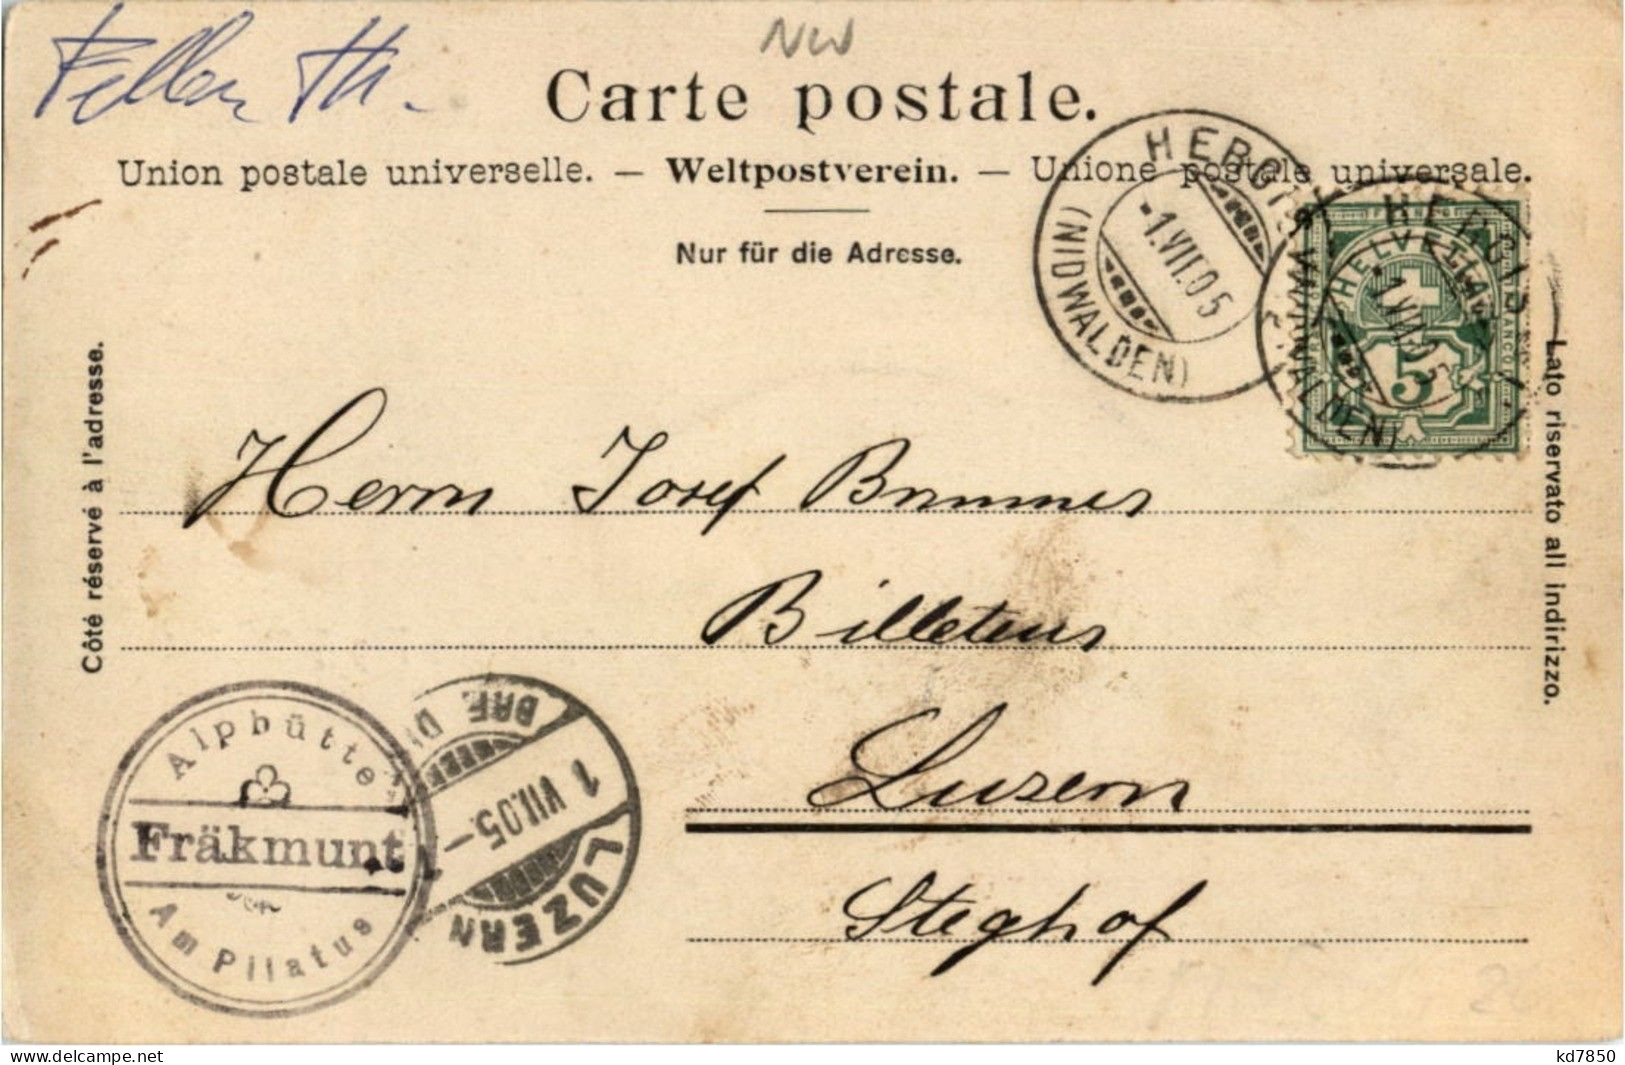 Feller Th.
Carte postale.
Union postale universelle. — Weltpostverein. — Unione postale universale.
Nur für die Adresse.
HERGISWIL
-1.VII.05
(NIDWALDEN)
HERGISWIL
-1.VII.05
(NIDWALDEN)
HELVETIA
FRANCO
5
Côté réservé à l'adresse.
Lato riservato all indirizzo.
Herrn Josef Brunner
Billeteur
Luzern
Steghof
Alphütte
Fräkmunt
Am Pilatus
BRF. D
1 VII.05.–
LUZERN
www.delcampe.net
kd7850